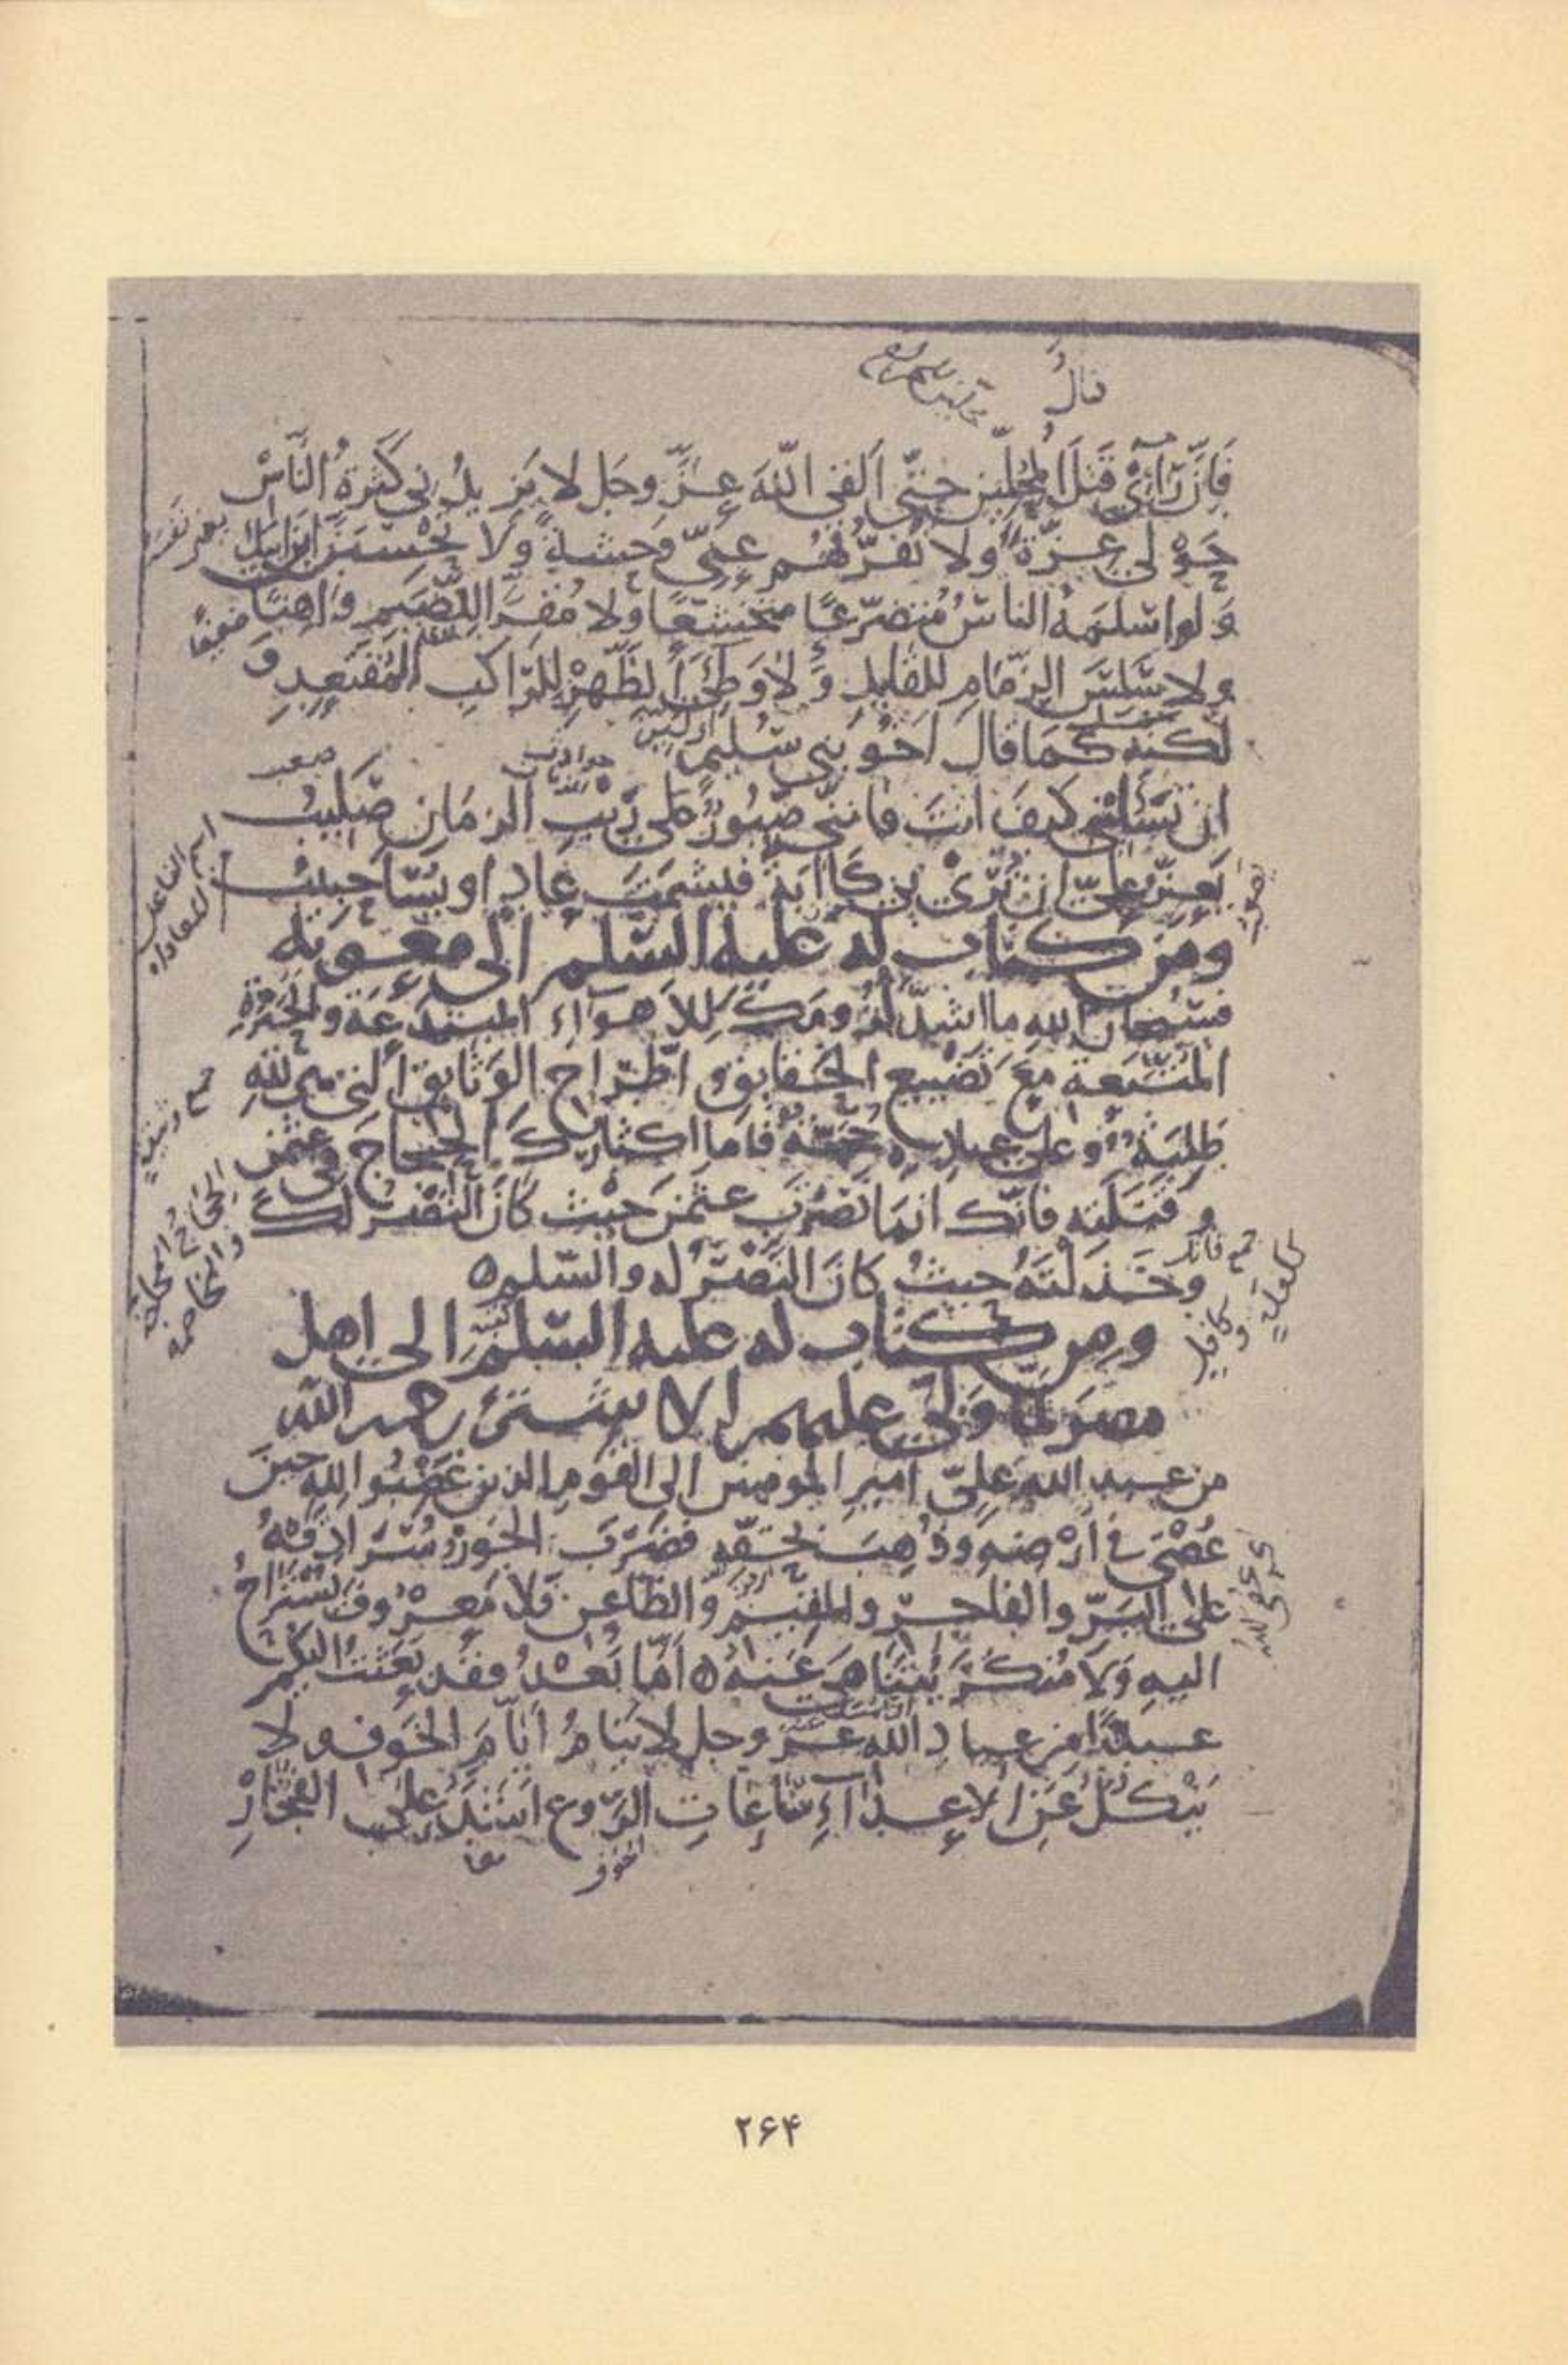 قالُ
فَاِنَّ رَأْيِي قَتْلُ المُحِلِّين حتّى اَلقى اللّهَ عزَّ وجل لا يَزيدُني كَثرةُ النَّاسْ
حَوْلي عِزّةً ولا تَفَرُّقُهُم عنّي وَحشةً ولا تَحْسَبَنَّ ابنَ ابيكَ
وَلو اسْلَمَهُ الناسُ مُتضرّعًا متخشّعًا ولا مُقِرًّا للضَّيم واهنًا
ضعيفًا
ولا سَلِسَ الزّمامِ للقايد وَلا وَطِئَ الظَّهرْ للرّاكب المُقتَعِدِ و
لكنه كما قال اخو بني سُليم
ان تَسْأليني كيفَ انتَ فانني صَبُورٌ على رَيْبِ الزمانِ صَليبُ
صعب
يَعِزُّ عليّ ان تُرَىْ بي كَاابَةٌ فيشمَتَ عادٍ او يُسَاحبيبُ
اسم الفاعل
من المعاداه
ومن كتاب له عليه السّلم الى معوية
فسُبحان الله ما اشدّ لُزُومَكَ للاهوآءِ المبتدَعَة والحَيْرةِ
المتّبَعة مع تَضْييع الحقايق واطِّراح الوَثايق التي هي لله
طِلبَةٌ وعلى عبادِه حُجّةٌ فاما اكثارُكَ الحِجاجَ في عثمن
و قَتَلَتِه فانّك انما نَصَرْتَ عثمنَ حيْث كانَ النَّصْر لكَ
الحِجاجُ المحاجّة
والمخاصمه
وخَذلتَهُ حيثُ كانَ النَّصْرُ له والسّلم ه
ومن كتاب له عليه السّلم الى اهل
مصرَ لمّا ولّى عليهم الاشتر رحمه اللّه
من عبد الله عليّ امير المومنين الى القوم الذين غَضِبُوا للهِ حينَ
عُصِيَ في اَرْضِه وذُهِبَ بحقّه فضَرَبَ الجَورُ سُرادِقَهُ
على البَرّ والفاجر والمقيم والظّاعن فلا مَعْرُوفٌ يُسْتَراحُ
اليه وَلا مُنكَرٌ يُتَناهى عَنهُ ه اَمّا بَعْدُ فقد بَعَثْتُ اليكم
عبدًا من عباد الله عزّ وجل لا ينامُ ايّامَ الخَوف ولا
يَنْكُلُ عَنِ الاعداءِ سَاعاتِ الرَّوعِ اشَدَّ على الفُجّارْ
الخوف
۲۶۴